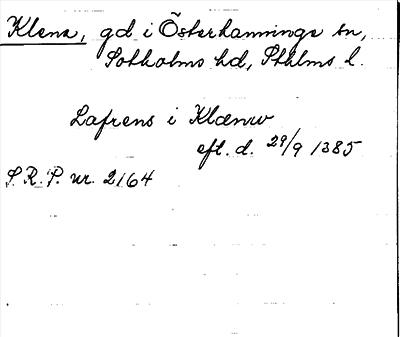 Klena, gd i Österhanninge sn,
Sotholms hd, Sthlms l.
Lafrens i Klænw
eft. d. 29/9 1385
S.R.P. nr. 2164